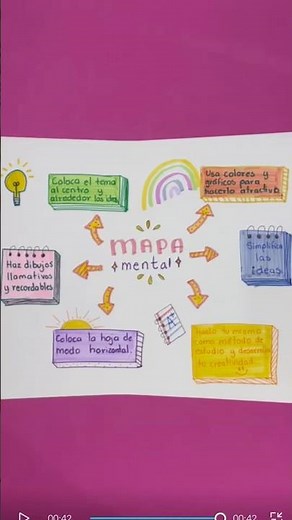 Coloca el tema
al centro y
alrededor las ideas
Usa colores y
gráficos para
hacerlo atractivo.
MAPA
mental
Haz dibujos
llamativos
y recordables.
Simplifica
las
ideas.
Coloca la hoja de
modo horizontal.
A+
como método de
estudio y
tu creatividad.
00:42
00:42